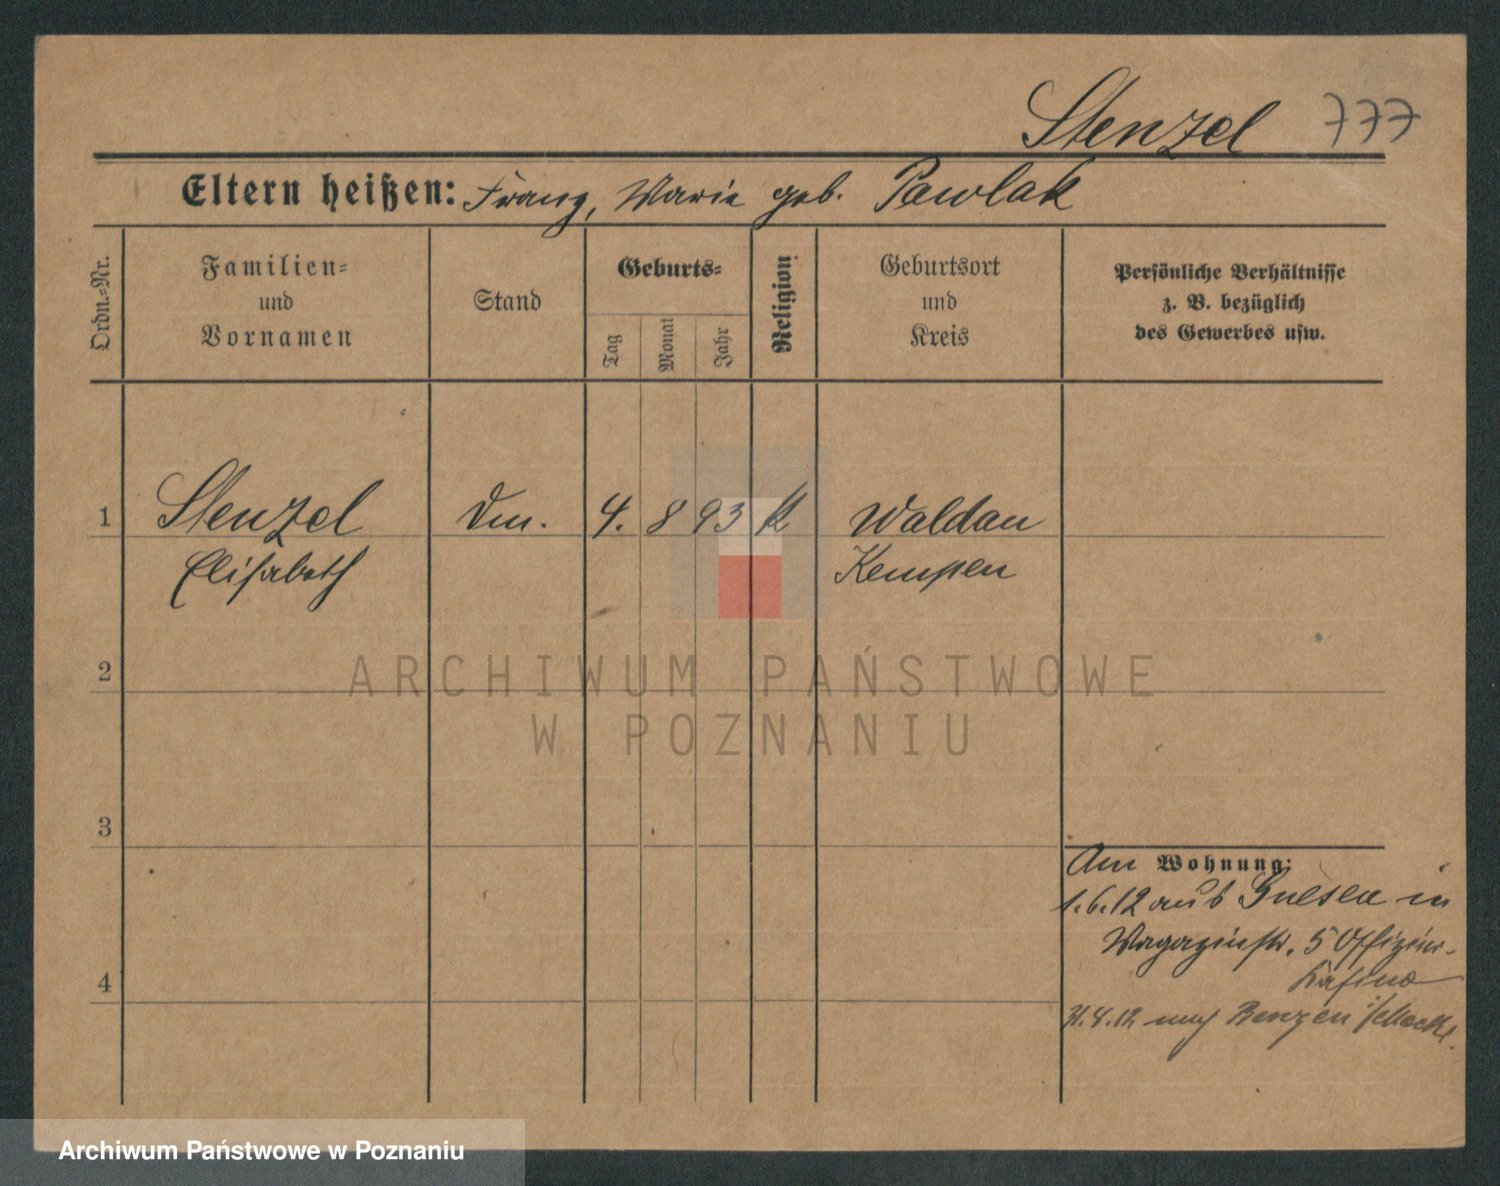 Stenzel 777
Eltern heißen: Franz, Marie geb. Pawlak
Ordn.-Nr.
Familien-
und
Vornamen
Stand
Geburts-
Tag
Monat
Jahr
Religion
Geburtsort
und
Kreis
Persönliche Verhältnisse
z. B. bezüglich
des Gewerbes usw.
1 Stenzel Dm. 4. 8 93 K Waldau
Elisabeth Kempen
2
3
4
Am Wohnung:
1.6.12 aus Gnesen in
Magazinstr. 5 Offizier-
Kasino
31.8.12 nach
ARCHIWUM PAŃSTWOWE
W POZNANIU
Archiwum Państwowe w Poznaniu